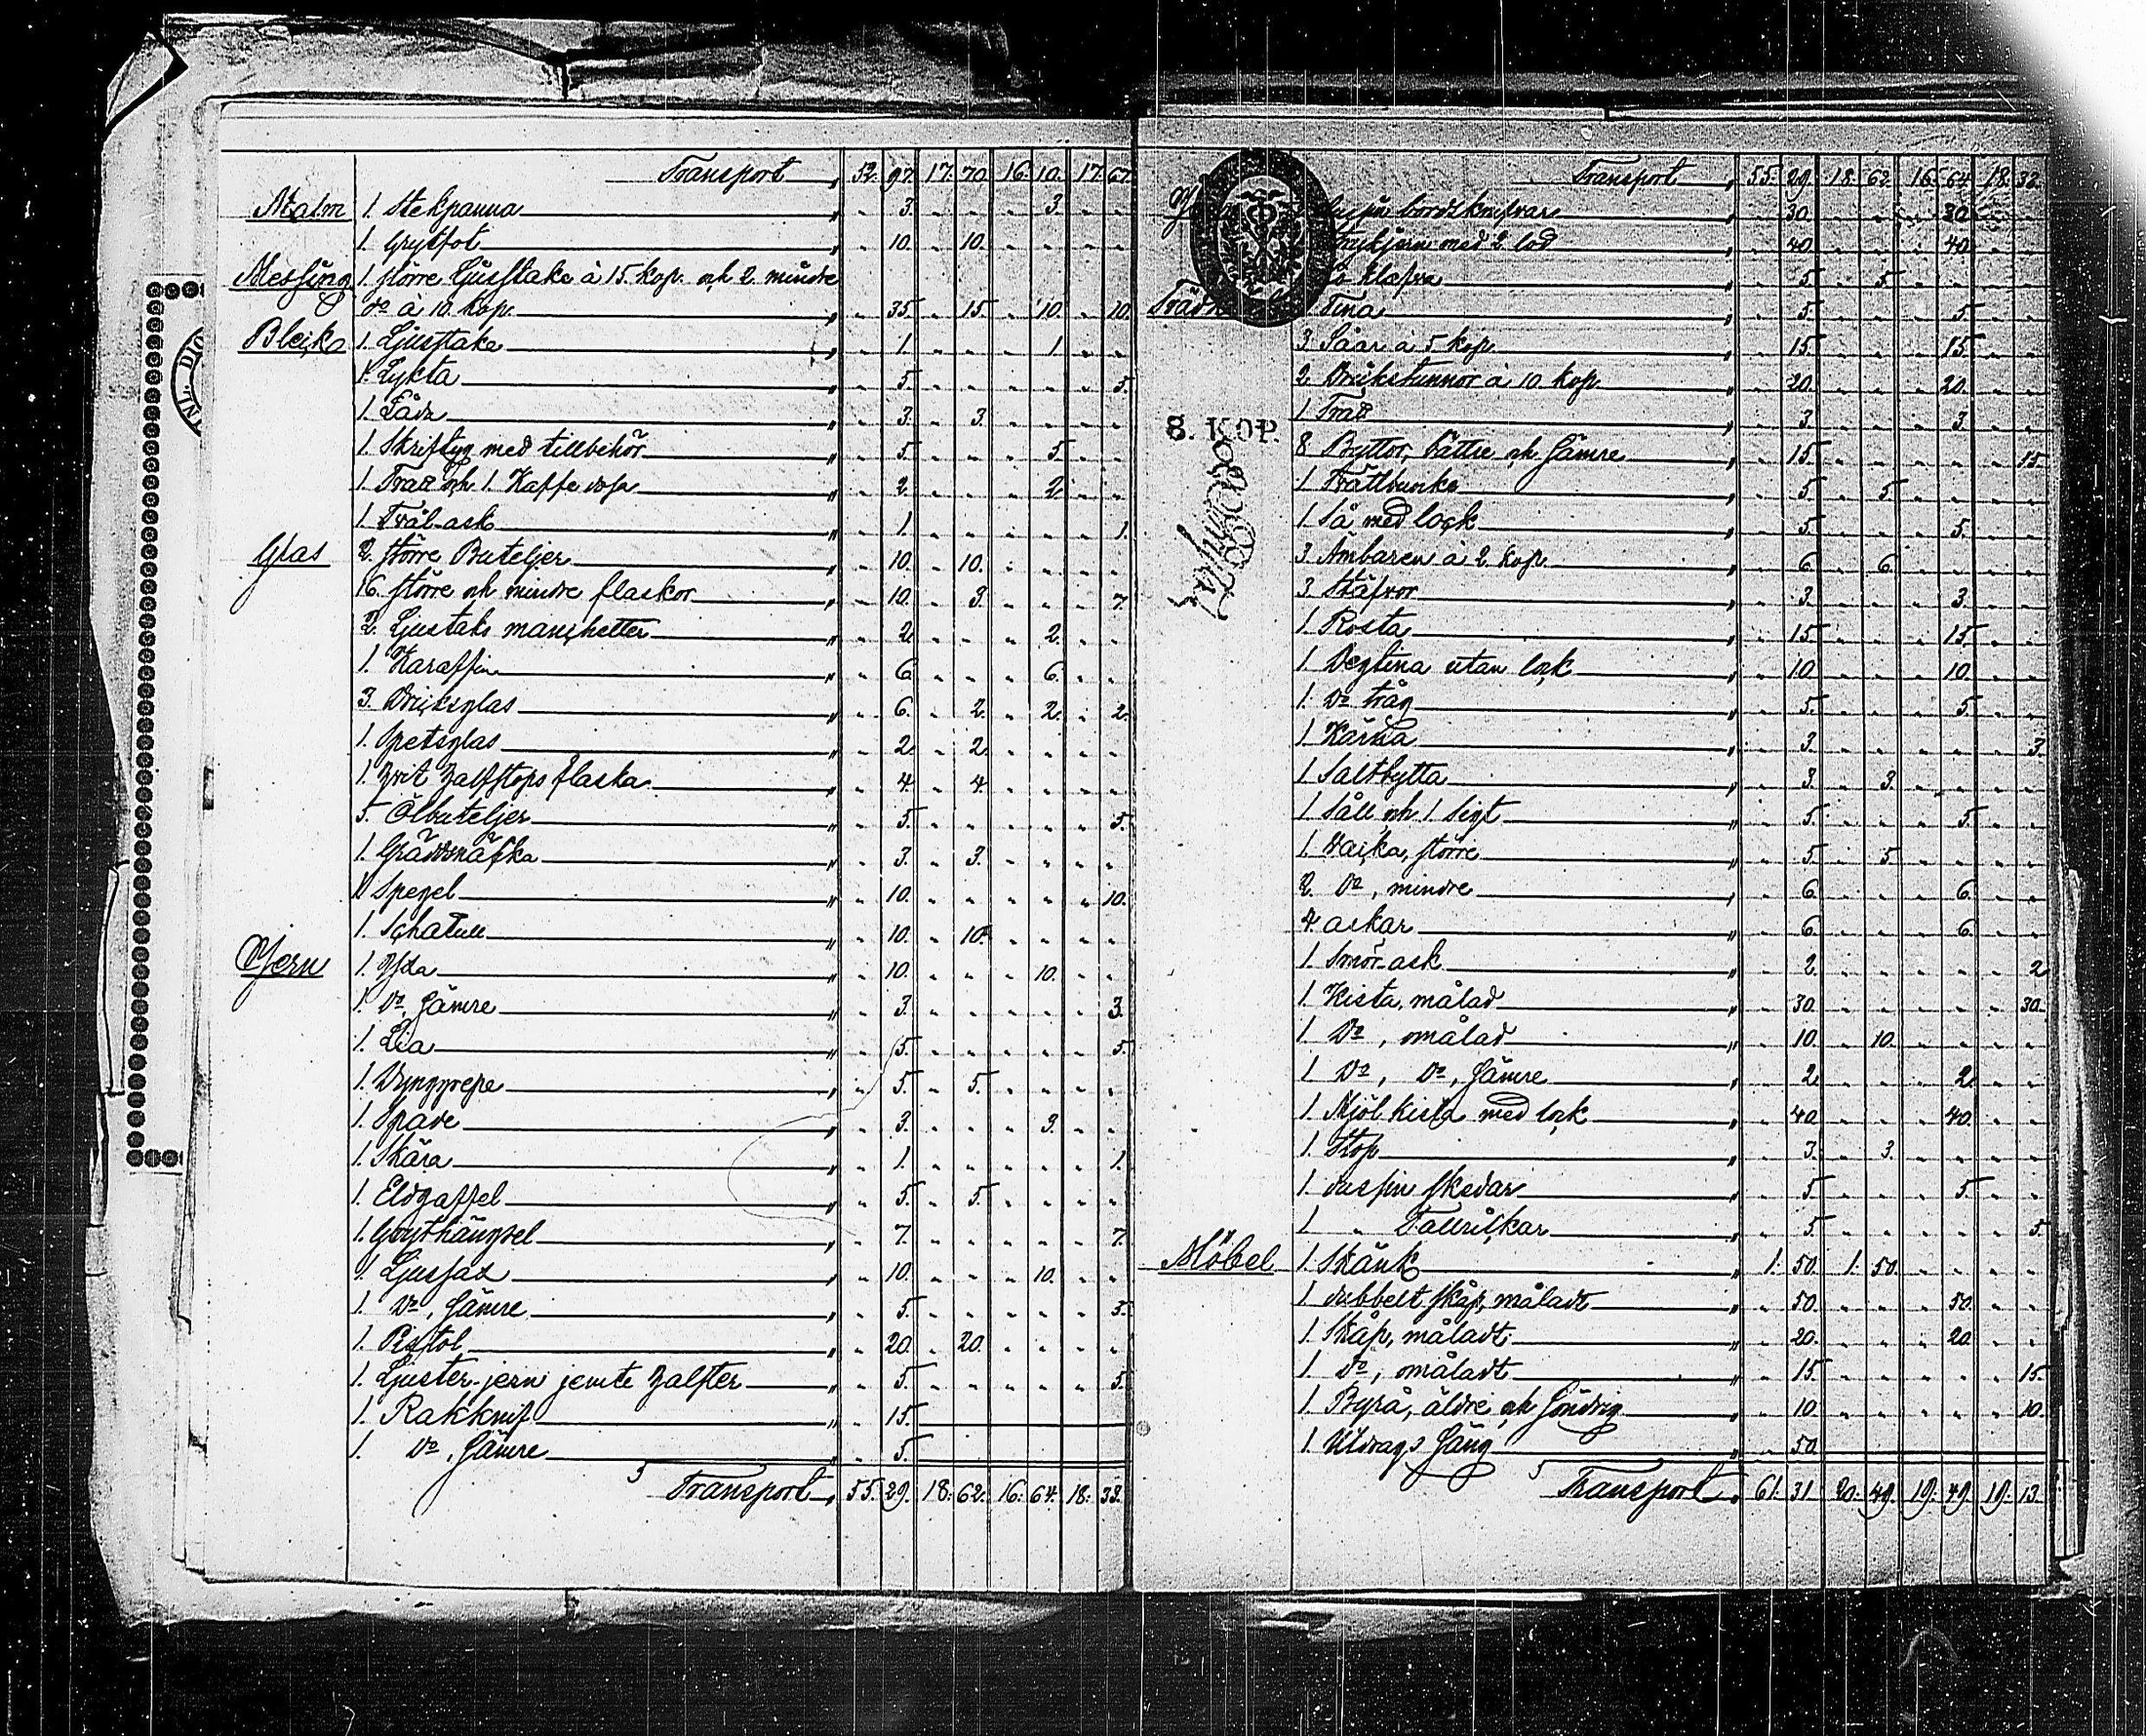 Transport „ 52. 97. 17. 70. 16. 10. 17. 67.
Malm 1. Stekpanna „ - 3. - - - 3. - -
1. Grytfot „ - 10. - 10. - - - -
Messing 1. större Ljusstake à 15. kop. och 2. mindre
do à 10. kop. „ - 35. - 15. - 10. - 10.
Blecka 1. Ljusstake „ - 1. - - - 1. - -
1. Lykta „ - 5. - - - - - 5.
1. Låda „ - 3. - 3. - - - -
1. Skriftyg med tillbehör „ - 5. - - - 5. - -
1. Tratt och 1. Kaffe dosa „ - 2. - - - 2. - -
1. Tvål-ask „ - 1. - - - - - 1.
Glas 2. större Buteljer „ - 10. - 10. - - - -
16. större och mindre flaskor „ - 10. - 3. - - - 7.
2. Ljustaks manchetter „ - 2. - - - 2. - -
1. Karaffin „ - 6. - - - 6. - -
3. Dricksglas „ - 6. - 2. - 2. - 2.
1. Spetsglas „ - 2. - 2. - - - -
1. hvit halfstops flaska „ - 4. - 4. - - - -
5. Ölbuteljer „ - 5. - - - - - 5.
1. Gräddsnäcka „ - 3. - 3. - - - -
1. Spegel „ - 10. - - - - - 10.
1. Schatull „ - 10. - 10. - - - -
Jern 1. Yxa „ - 10. - - - 10. - -
1. do, sämre „ - 3. - - - - - 3.
1. Lia „ - 5. - - - - - 5.
1. Dynggrepe „ - 5. - 5. - - - -
1. Spade „ - 3. - - - 3. - -
1. Skära „ - 1. - - - - - 1.
1. Eldgaffel „ - 5. - 5. - - - -
1. Grythängsel „ - 7. - - - - - 7.
1. Ljussax „ - 10. - - - 10. - -
1. do, sämre „ - 5. - - - - - 5.
1. Pistol „ - 20. - 20. - - - -
1. Ljuster-jern jemte halster „ - 5. - - - - - 5.
1. Rakknif „ - 15.
1. do, sämre „ - 5.
Transport „ 55. 29. 18. 62. 16. 64. 18. 33.
Transport „ 55. 29. 18. 62. 16. 64. 18. 33.
bordsknifvar „ - 30. - - - 30. - -
Strykjern med 2 lod „ - 40. - - - 40. - -
klafve „ - 5. - 5. - - - -
Träd Tina „ - 5. - - - 5. - -
3 Såar à 5 kop. „ - 15. - - - 15. - -
8. KOP.
2 Drickstunnor à 10 kop. „ - 20. - - - 20. - -
1 Tratt „ - 3. - - - 3. - -
8 Byttor, bättre och sämre „ - 15. - - - - - 15.
1 Tvättbunke „ - 5. - 5. - - - -
1 Så med lock „ - 5. - - - 5. - -
3 Ämbaren à 2 kop. „ - 6. - 6. - - - -
3 Stäfvor „ - 3. - - - 3. - -
1 Rosta „ - 15. - - - 15. - -
1 Degtina utan lock „ - 10. - - - 10. - -
1. do tråg „ - 5. - - - 5. - -
1 Kärna „ - 3. - - - - - 3.
1 Saltbytta „ - 3. - 3. - - - -
1 Såll och 1 Sigt „ - 5. - - - 5. - -
1. Vacka, större „ - 5. - 5. - - - -
2. do, mindre „ - 6. - - - 6. - -
4. askar „ - 6. - - - 6. - -
1 Smör-ask „ - 2. - - - - - 2
1 Kista, målad „ - 30. - - - - - 30.
1 do, omålad „ - 10. - 10. - - - -
1 do, do, sämre „ - 2. - - - 2. - -
1 Mjölkista med lock „ - 40. - - - 40. - -
1. Stop „ - 3. - 3. - - - -
1 dussin skedar „ - 5. - - - 5. - -
1 „ Tallrickar „ - 5. - - - - - 5.
Möbel 1. Skänk „ 1. 50. 1. 50. - - - -
1 dubbelt skåp, måladt „ - 50. - - - 50. - -
1 Skåp, måladt „ - 20. - - - 20. - -
1 do, omåladt „ - 15. - - - - - 15.
1 Byrå, äldre och söndrig „ - 10. - - - - - 10.
1 Utdrags säng „ - 50.
Transport „ 61. 31. 20. 49. 19. 49. 19. 13.